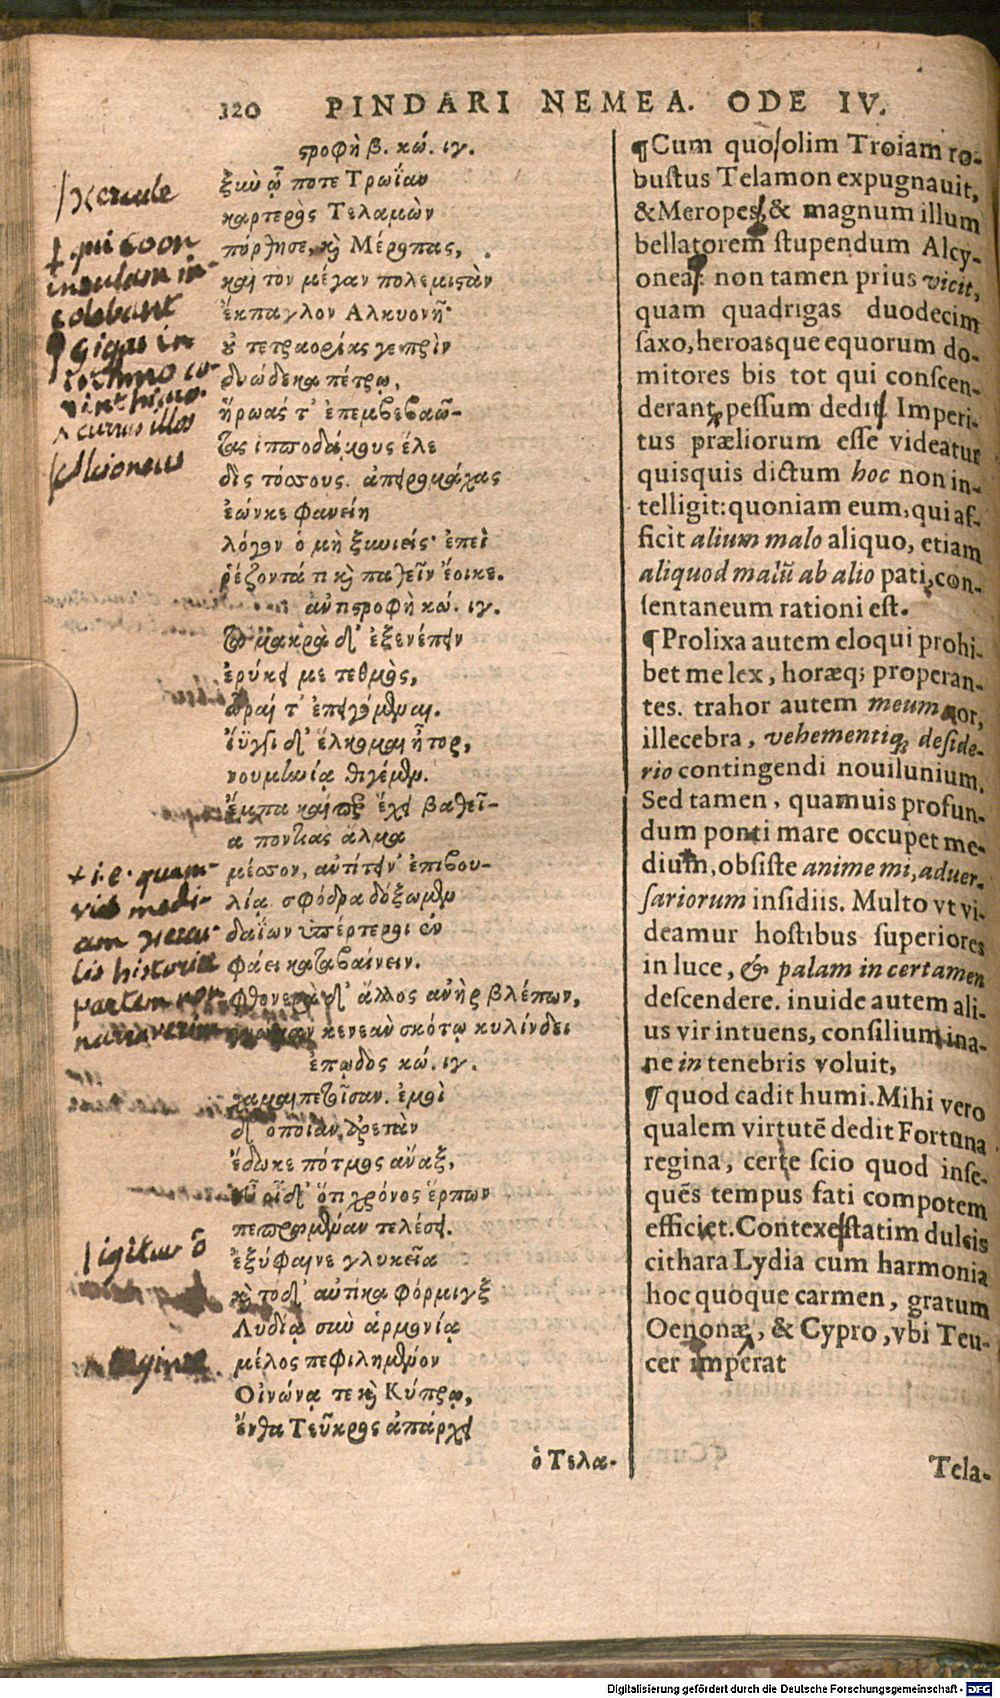 120 PINDARI NEMEA. ODE IV.
ϛροφὴ β. κώ. ιγ.
ξιὺ ᾧ ποτε Τρωΐαν
καρτερὸς Τελαμὼν
πόρθησε, κὴ Μέροπας,
καὶ τὸν μέγαν πολεμιϛὰν
ἔκπαγλον Ἀλκυονῆ·
οὐ τετραορίας γε πρὶν
δυώδεκα πέτρῳ,
ἥρωάς τ' ἐπεμβεβαῶ-
τας ἱπποδάμους ἕλε
δὶς τόσους. ἀπειρομάχας
ἐών κε φανείη
λόγον ὁ μὴ ξυνιείς· ἐπεὶ
ῥέζοντά τι κὴ παθεῖν ἔοικε.
ἀντιϛροφὴ κώ. ιγ.
Τὰ μακρὰ δ' ἐξενέπειν
ἐρύκει με τεθμὸς,
ὧραί τ' ἐπειγόμεναι.
ἴϋγγι δ' ἕλκομαι ἦτορ,
νουμηνίᾳ θιγέμεν.
ἔμπα καίπερ ἔχει βαθεῖ-
α ποντιὰς ἅλμα
μέσσον, ἀντίτειν' ἐπιβου-
λίᾳ σφόδρα δόξομεν
δαΐων ὑπέρτεροι ἐν
φάει καταβαίνειν.
φθονερὰ δ' ἄλλος ἀνὴρ βλέπων,
γνώμαν κενεὰν σκότῳ κυλίνδει
ἐπῳδὸς κώ. ιγ.
χαμαιπετοῖσαν. ἐμοὶ
δ' ὁποίαν ἀρετὰν
ἔδωκε πότμος ἄναξ,
εὖ οἶδ' ὅτι χρόνος ἕρπων
πεπρωμέναν τελέσει.
ἐξύφαινε γλυκεῖα
κὴ τόδ' αὐτίκα φόρμιγξ
Λυδίᾳ σιὺ ἁρμονίᾳ
μέλος πεφιλημένον
Οἰνώνᾳ τε κὴ Κύπρῳ,
ἔνθα Τεῦκρος ἀπάρχει
ὁ Τελα-
¶Cum quo olim Troiam ro-
bustus Telamon expugnauit,
& Meropes, & magnum illum
bellatorem stupendum Alcy-
oneas non tamen prius vicit,
quam quadrigas duodecim
saxo, heroasque equorum do-
mitores bis tot qui conscen-
derant, pessum dedit. Imperi-
tus præliorum esse videatur
quisquis dictum hoc non in-
telligit: quoniam eum, qui af-
ficit alium malo aliquo, etiam
aliquod malũ ab alio pati, con-
sentaneum rationi est.
¶Prolixa autem eloqui prohi-
bet me lex, horæq; properan-
tes. trahor autem meum cor,
illecebra, vehementiq; deside-
rio contingendi nouilunium.
Sed tamen, quamuis profun-
dum ponti mare occupet me-
dium, obsiste anime mi, aduer-
sariorum insidiis. Multo vt vi-
deamur hostibus superiores
in luce, & palam in certamen
descendere. inuide autem ali-
us vir intuens, consilium ina-
ne in tenebris voluit,
¶quod cadit humi. Mihi vero
qualem virtutẽ dedit Fortuna
regina, certe scio quod inse-
quẽs tempus fati compotem
efficiet. Contexe statim dulcis
cithara Lydia cum harmonia
hoc quoque carmen, gratum
Oenonæ, & Cypro, vbi Teu-
cer imperat
Tela-
Hercule
+ qui coon
insulam in-
colebant
gigas in
isthmo co-
rinthiaco.
currus illos
Alcioneus
+ i.e. quam-
vis medi-
am Hercu-
lis historiæ
partem non
narraverim
igitur ô
Æginæ
Digitalisierung gefördert durch die Deutsche Forschungsgemeinschaft - DFG